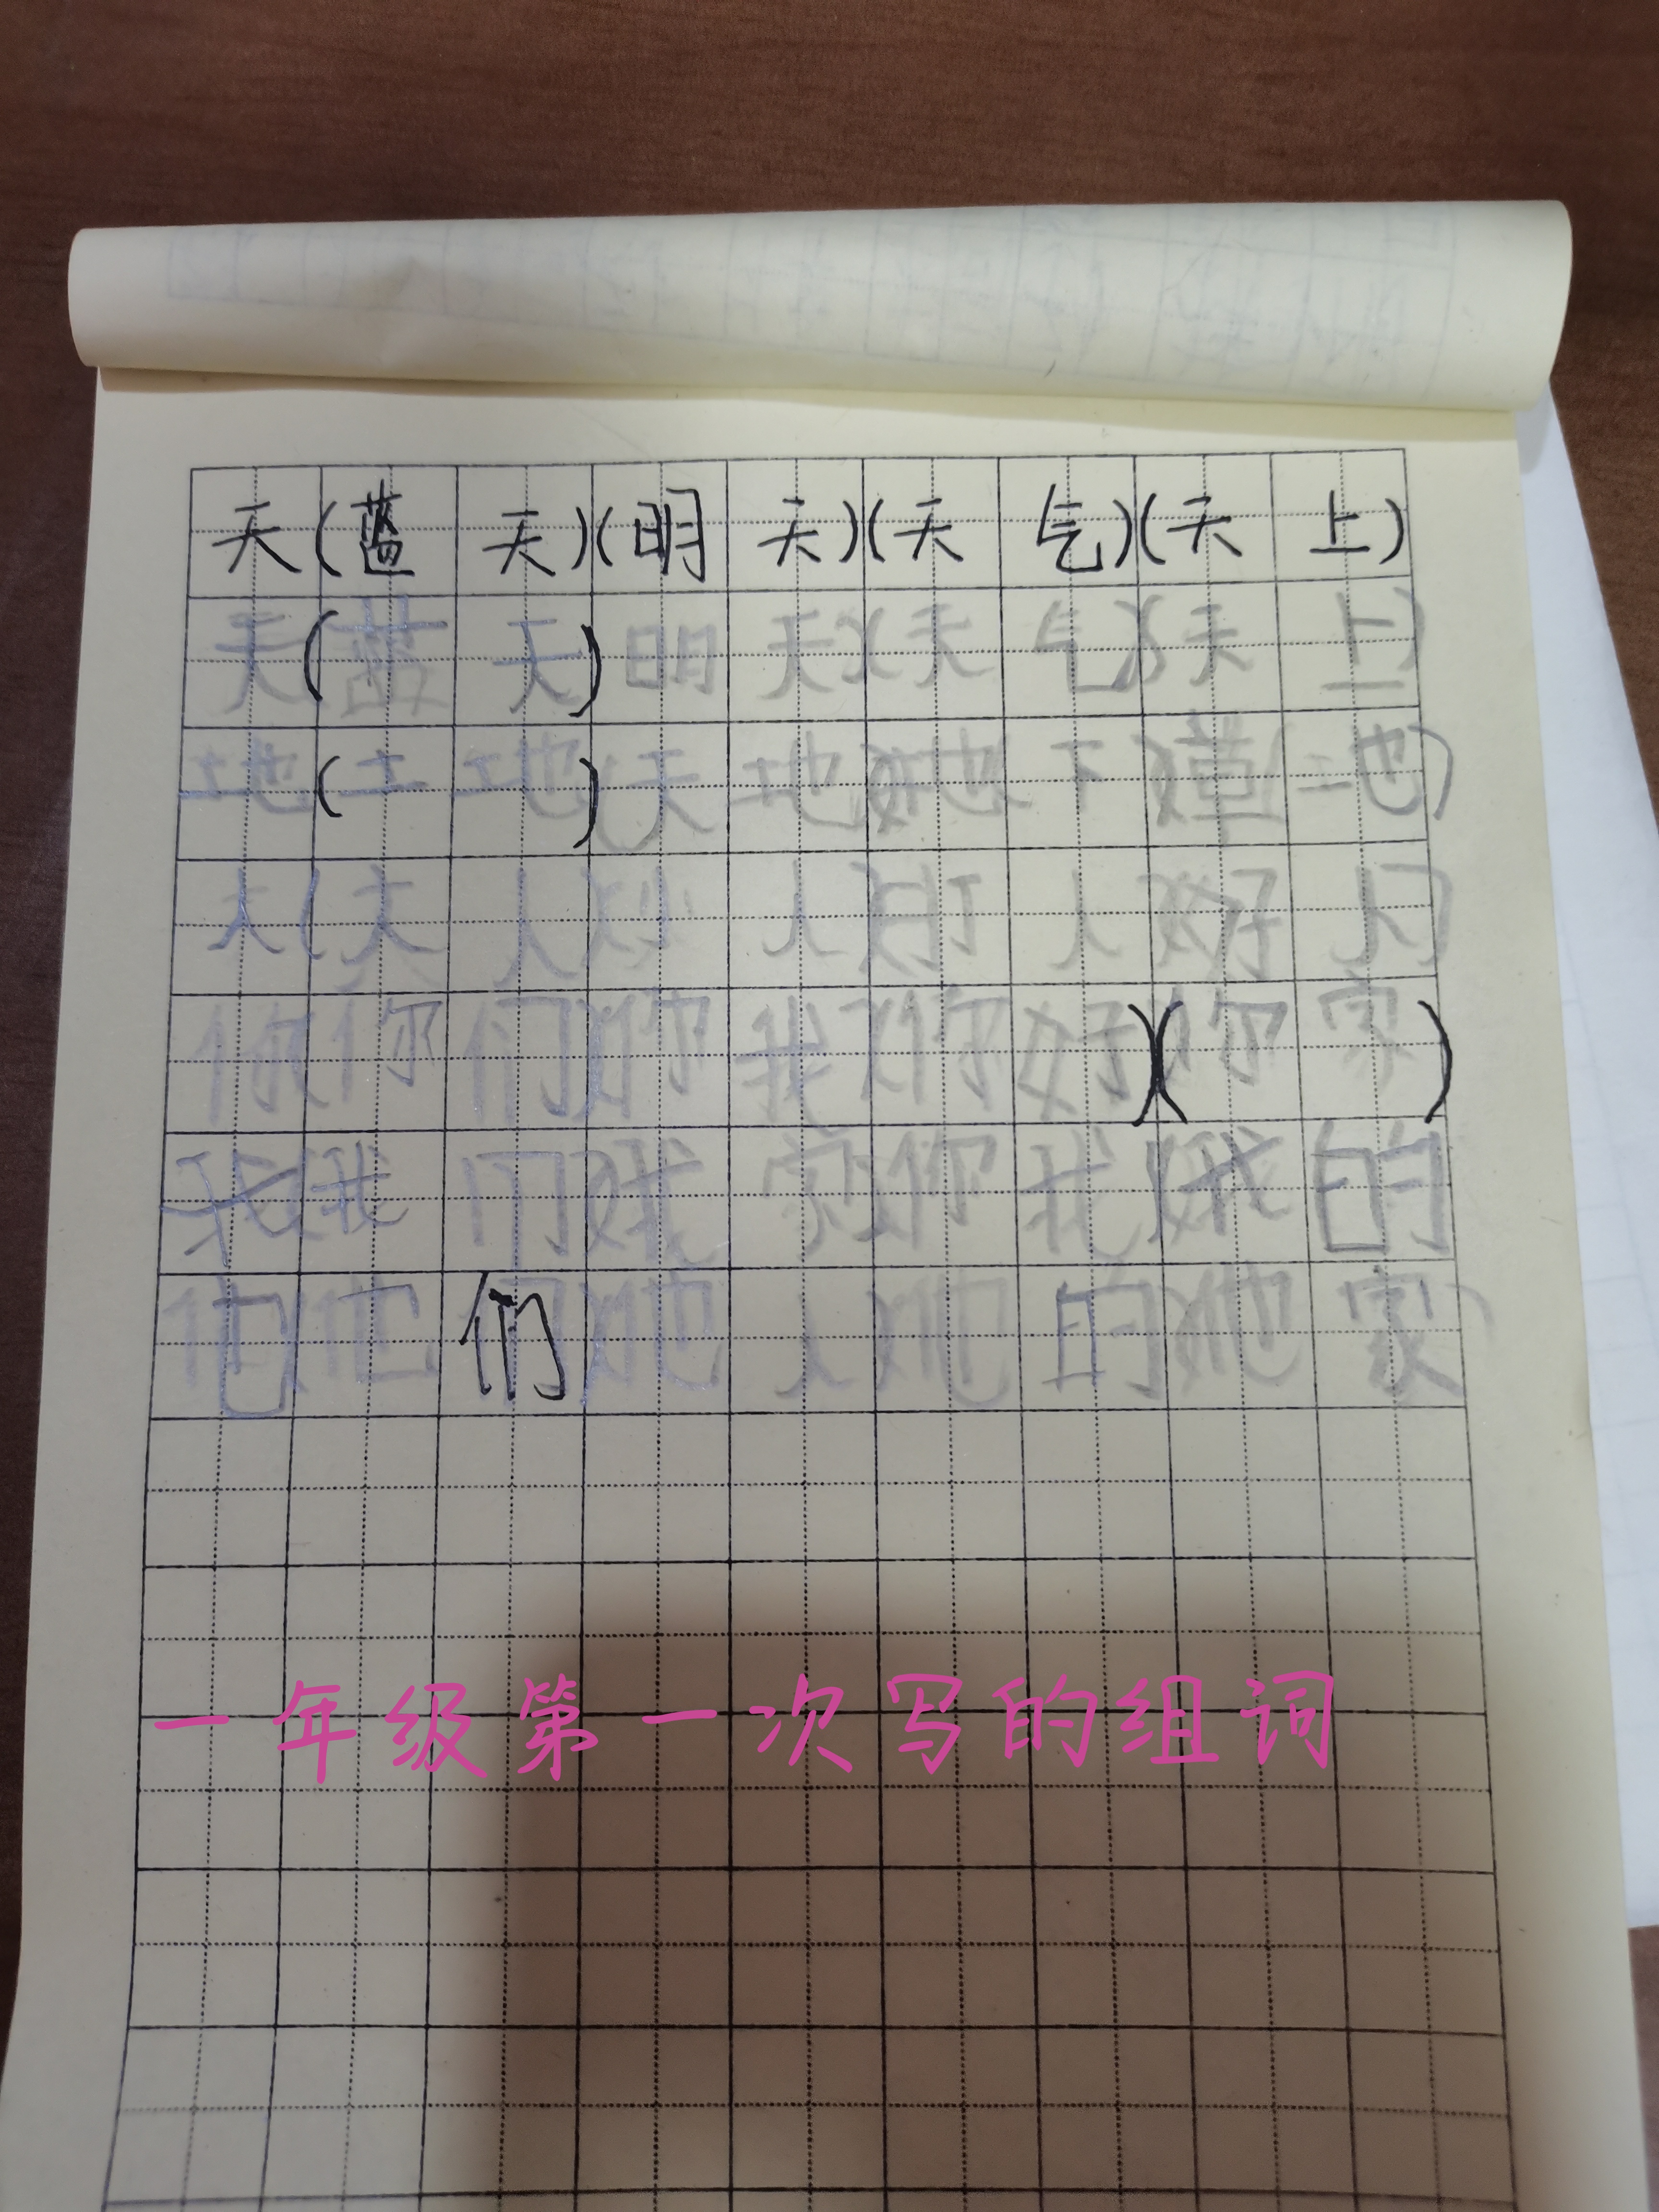 天(蓝天)(明天)(天气)(天上)
天(蓝天)明天)(天气)(天上)
地(土地)(天地)(地下)(草地)
人(大人)(人)(人)(好人)
你你们(你我(你好)(你家)
我我们(我(你我)(我的
他他们(他人(他的(他家)
一年级第一次写的组词